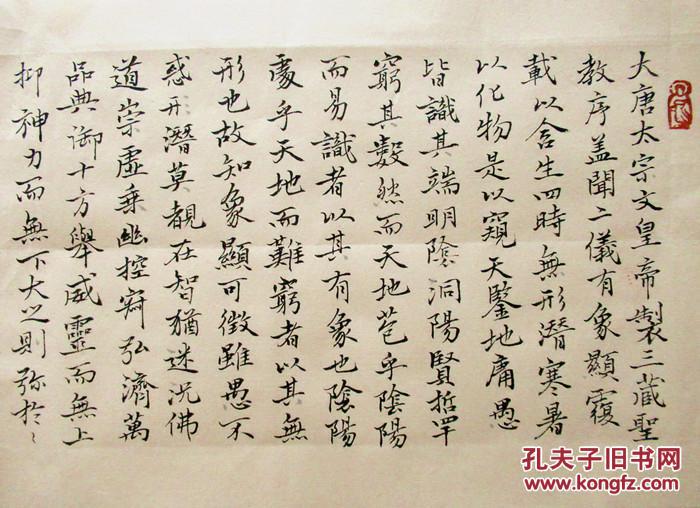 大唐太宗文皇帝製三藏聖
教序盖聞二儀有象顯覆
載以含生四時無形潛寒暑
以化物是以窺天鑒地庸愚
皆識其端明陰洞陽賢哲罕
窮其數然而天地苞乎陰陽
而易識者以其有象也陰陽
處乎天地而難窮者以其無
形也故知象顯可徵雖愚不
惑形潛莫覩在智猶迷況佛
道崇虛乘幽控寂弘濟萬
品典御十方舉威靈而無上
抑神力而無下大之則弥於
孔夫子旧书网
www.kongfz.com